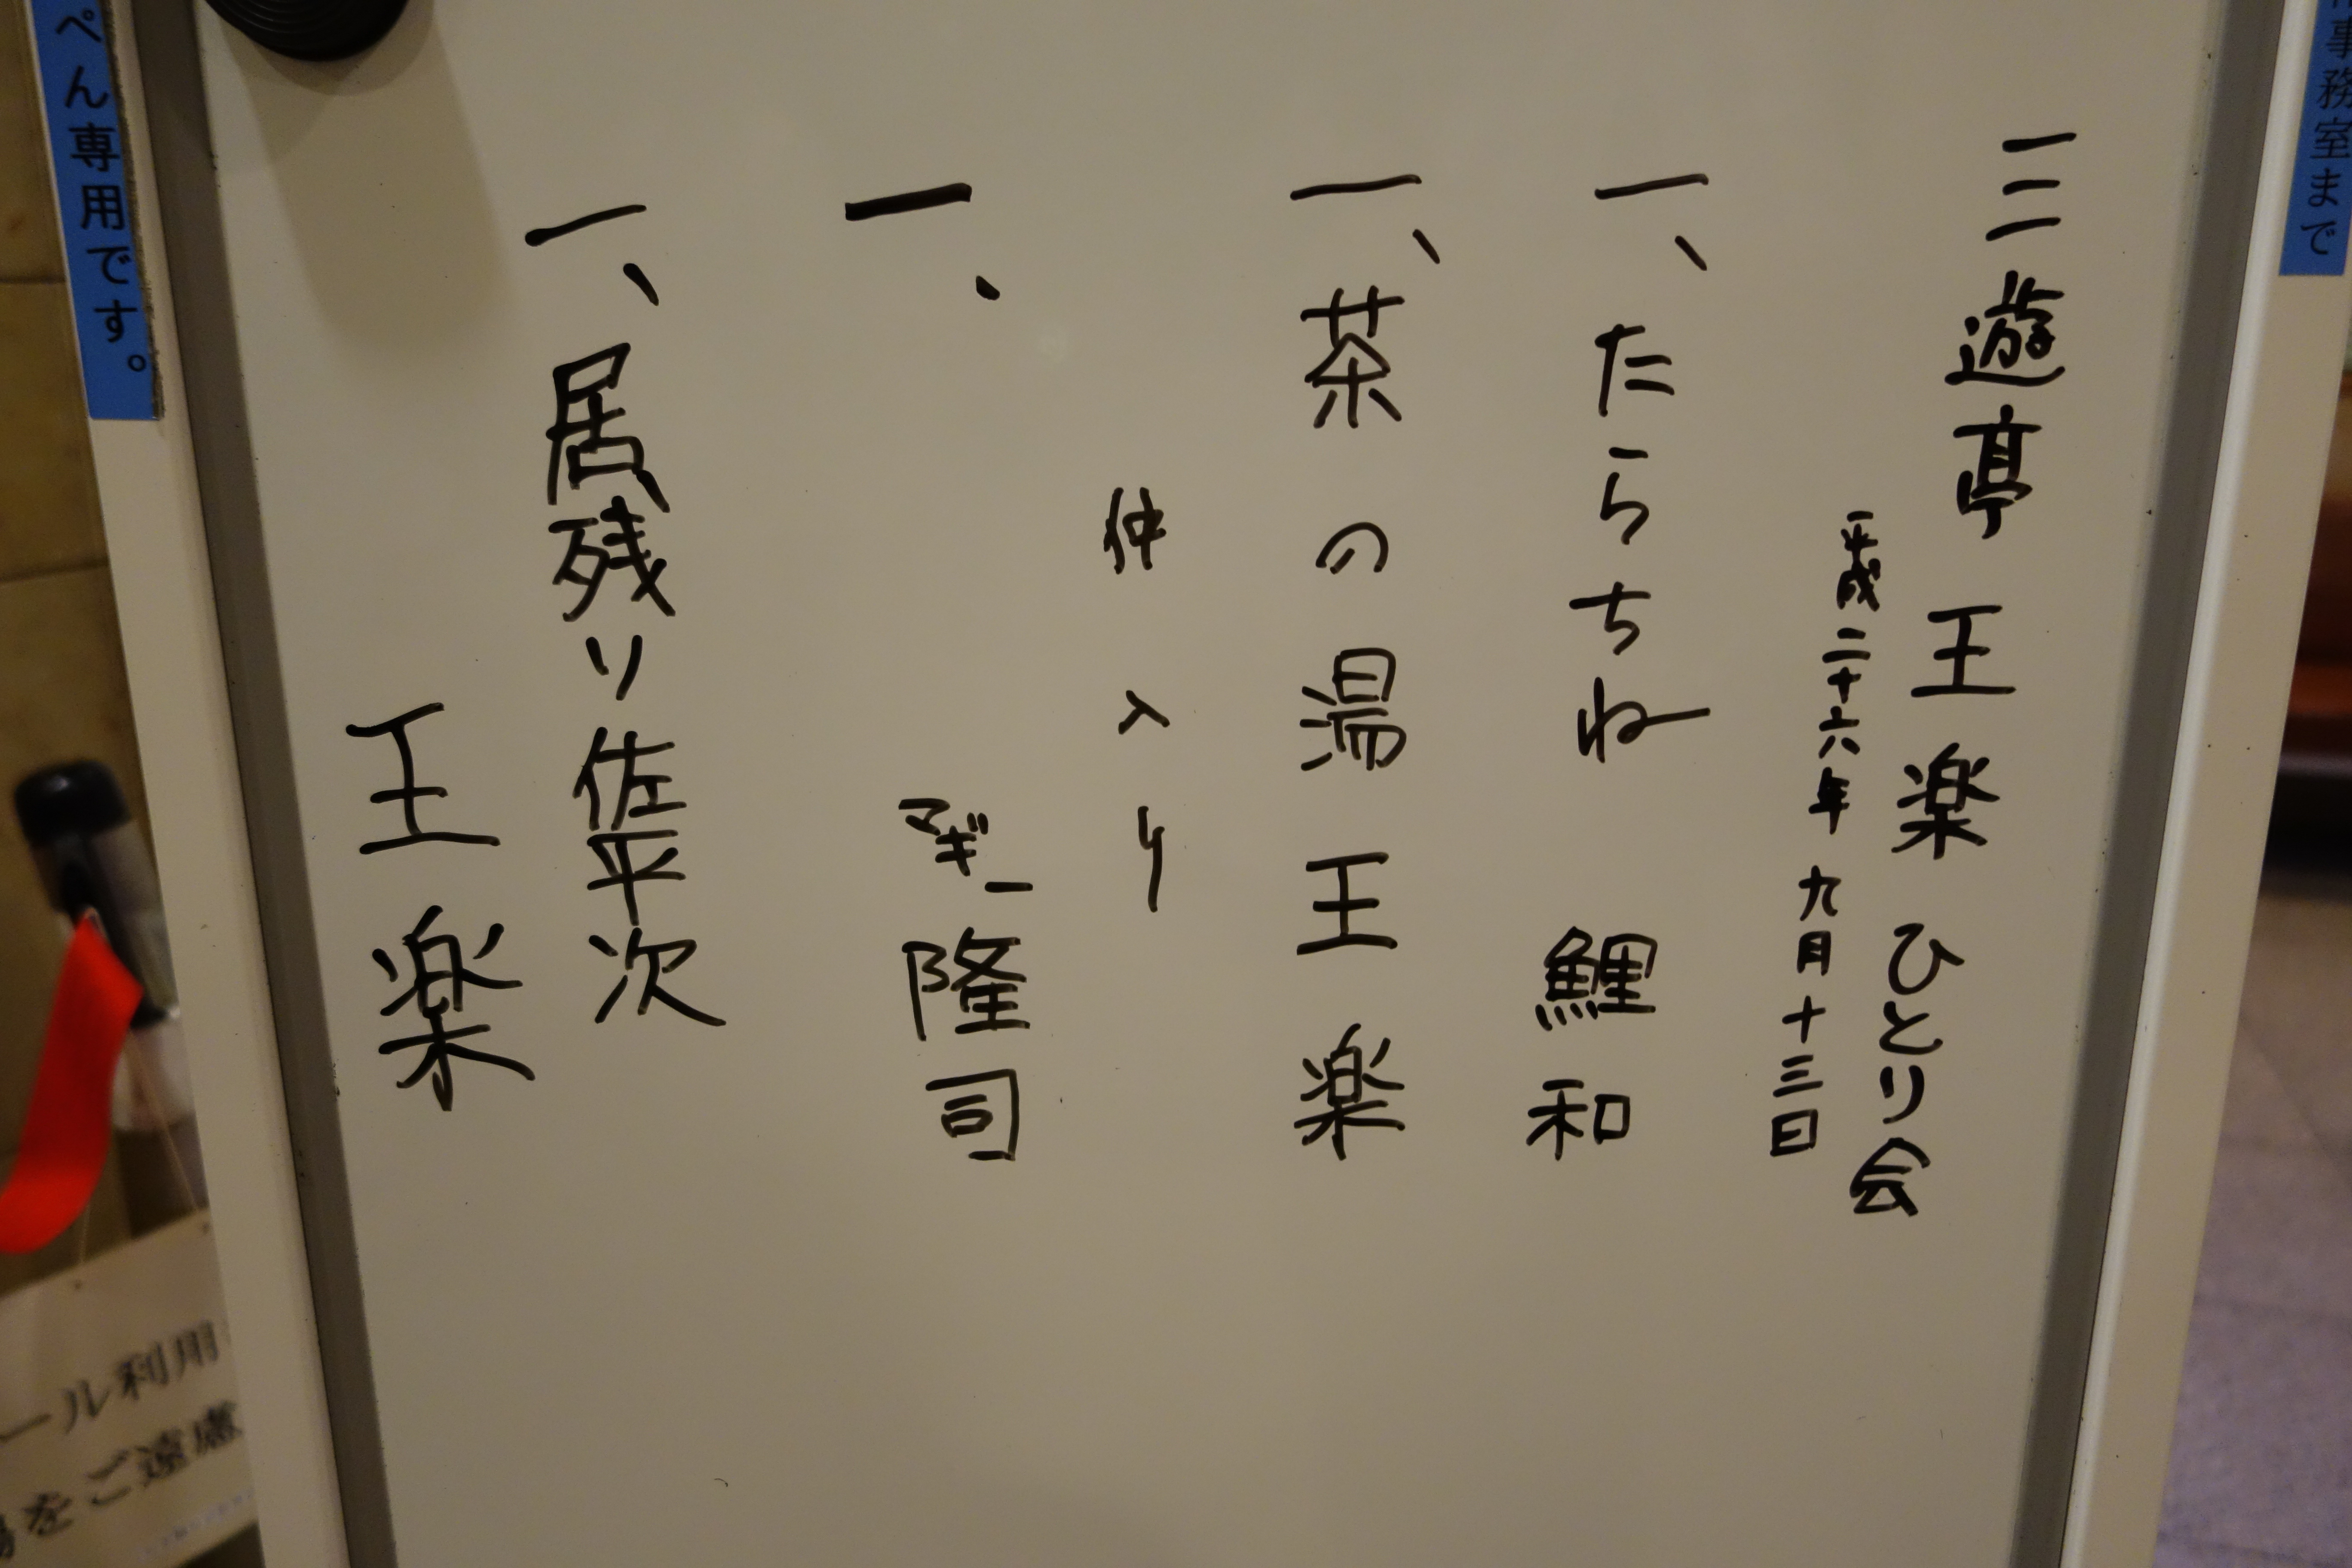 三遊亭 王楽 ひとり会
平成二十六年 九月十三日
一、たらちね 鯉和
一、茶の湯 王楽
仲入り
一、 マギー隆司
一、居残り佐平次
王楽
ぺん専用です。
事務室まで
ール利用
をご遠慮